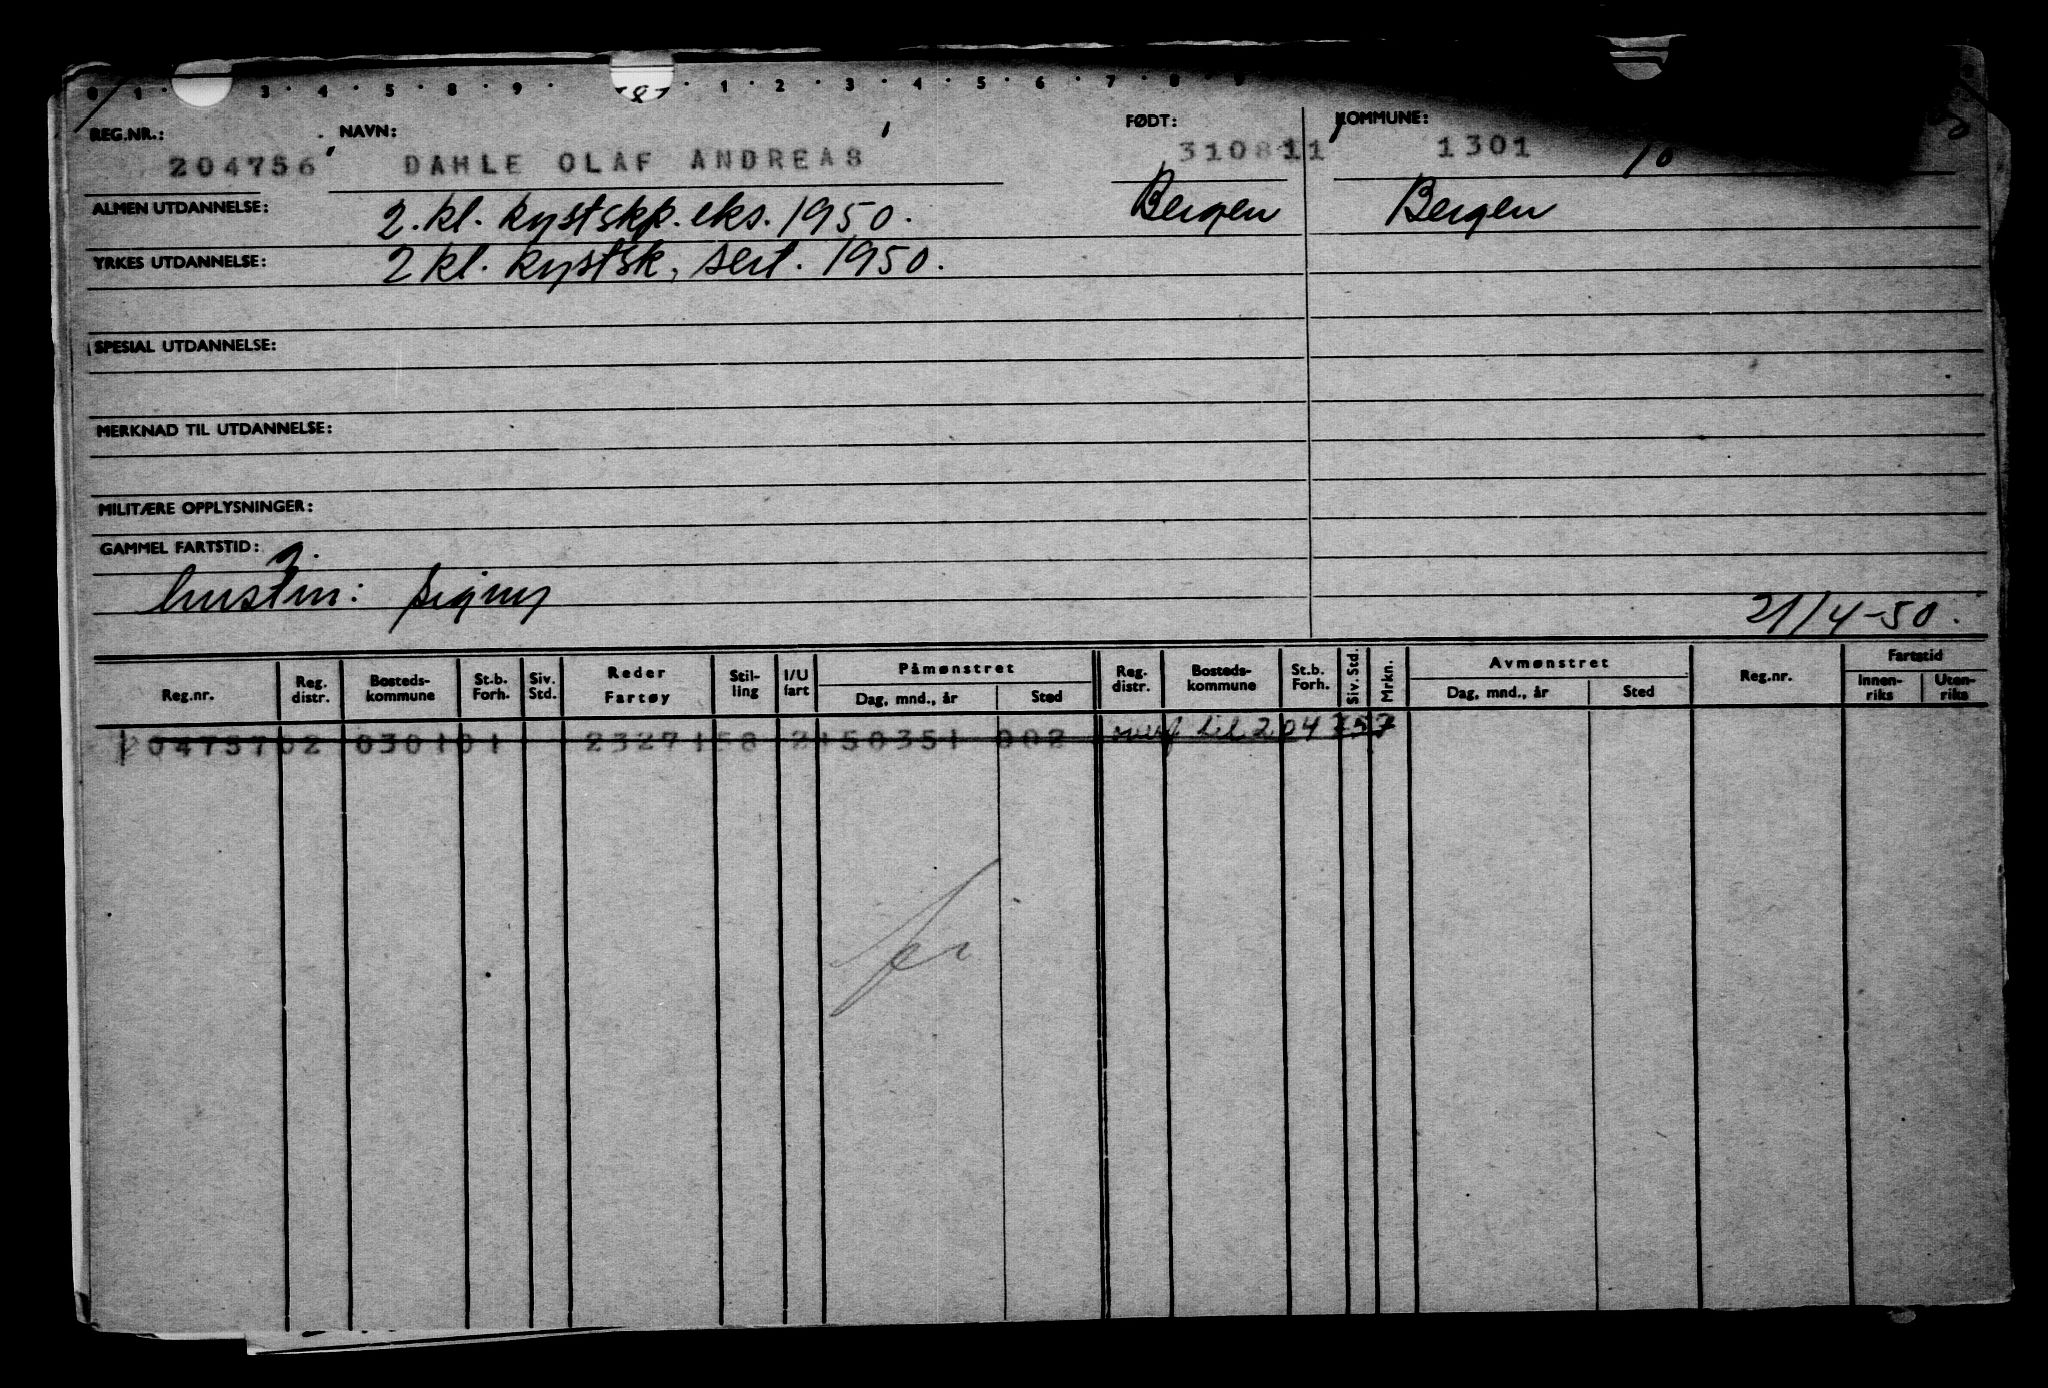 REG.NR.: NAVN: FØDT: KOMMUNE:
204756 DAHLE OLAF ANDREAS 310811 1301
ALMEN UTDANNELSE: 2. kl. kystskp. eks. 1950. Bergen Bergen
YRKES UTDANNELSE: 2 kl. kystsk. sert. 1950.
SPESIAL UTDANNELSE:
MERKNAD TIL UTDANNELSE:
MILITÆRE OPPLYSNINGER:
GAMMEL FARTSTID: g.
hustru: Signy 21/4-50.
Reg.nr. Reg. distr. Bosteds-kommune St.b. Forh. Siv. Std. Reder Fartøy Stil-ling I/U fart Påmønstret Dag, mnd., år Sted Reg. distr. Bosteds-kommune St.b. Forh. Siv. Std. Mrkn. Avmønstret Dag, mnd., år Sted Reg.nr. Fartstid Innen-riks Uten-riks
204757 02 0301 01 23271 58 2 150351 002 til 204757